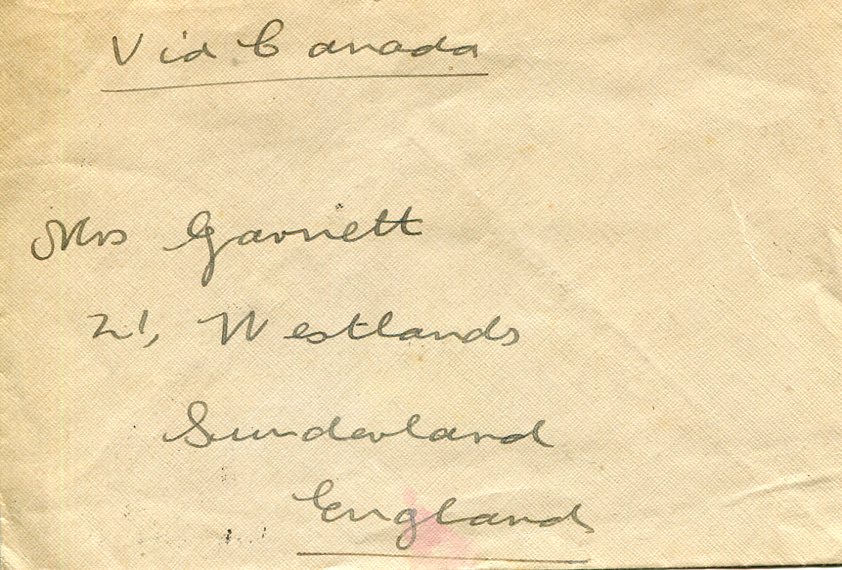 Via Canada
Mrs Garnett
21, Westlands
Sunderland
England